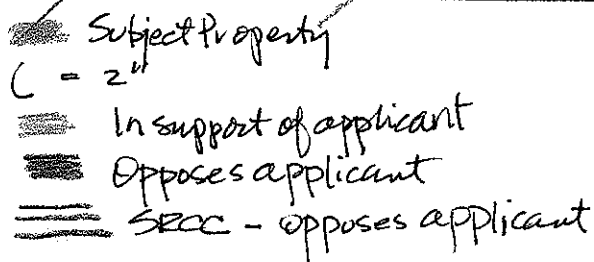 Subject Property
( = 2"
In support of applicant
Opposes applicant
SRCC - opposes applicant